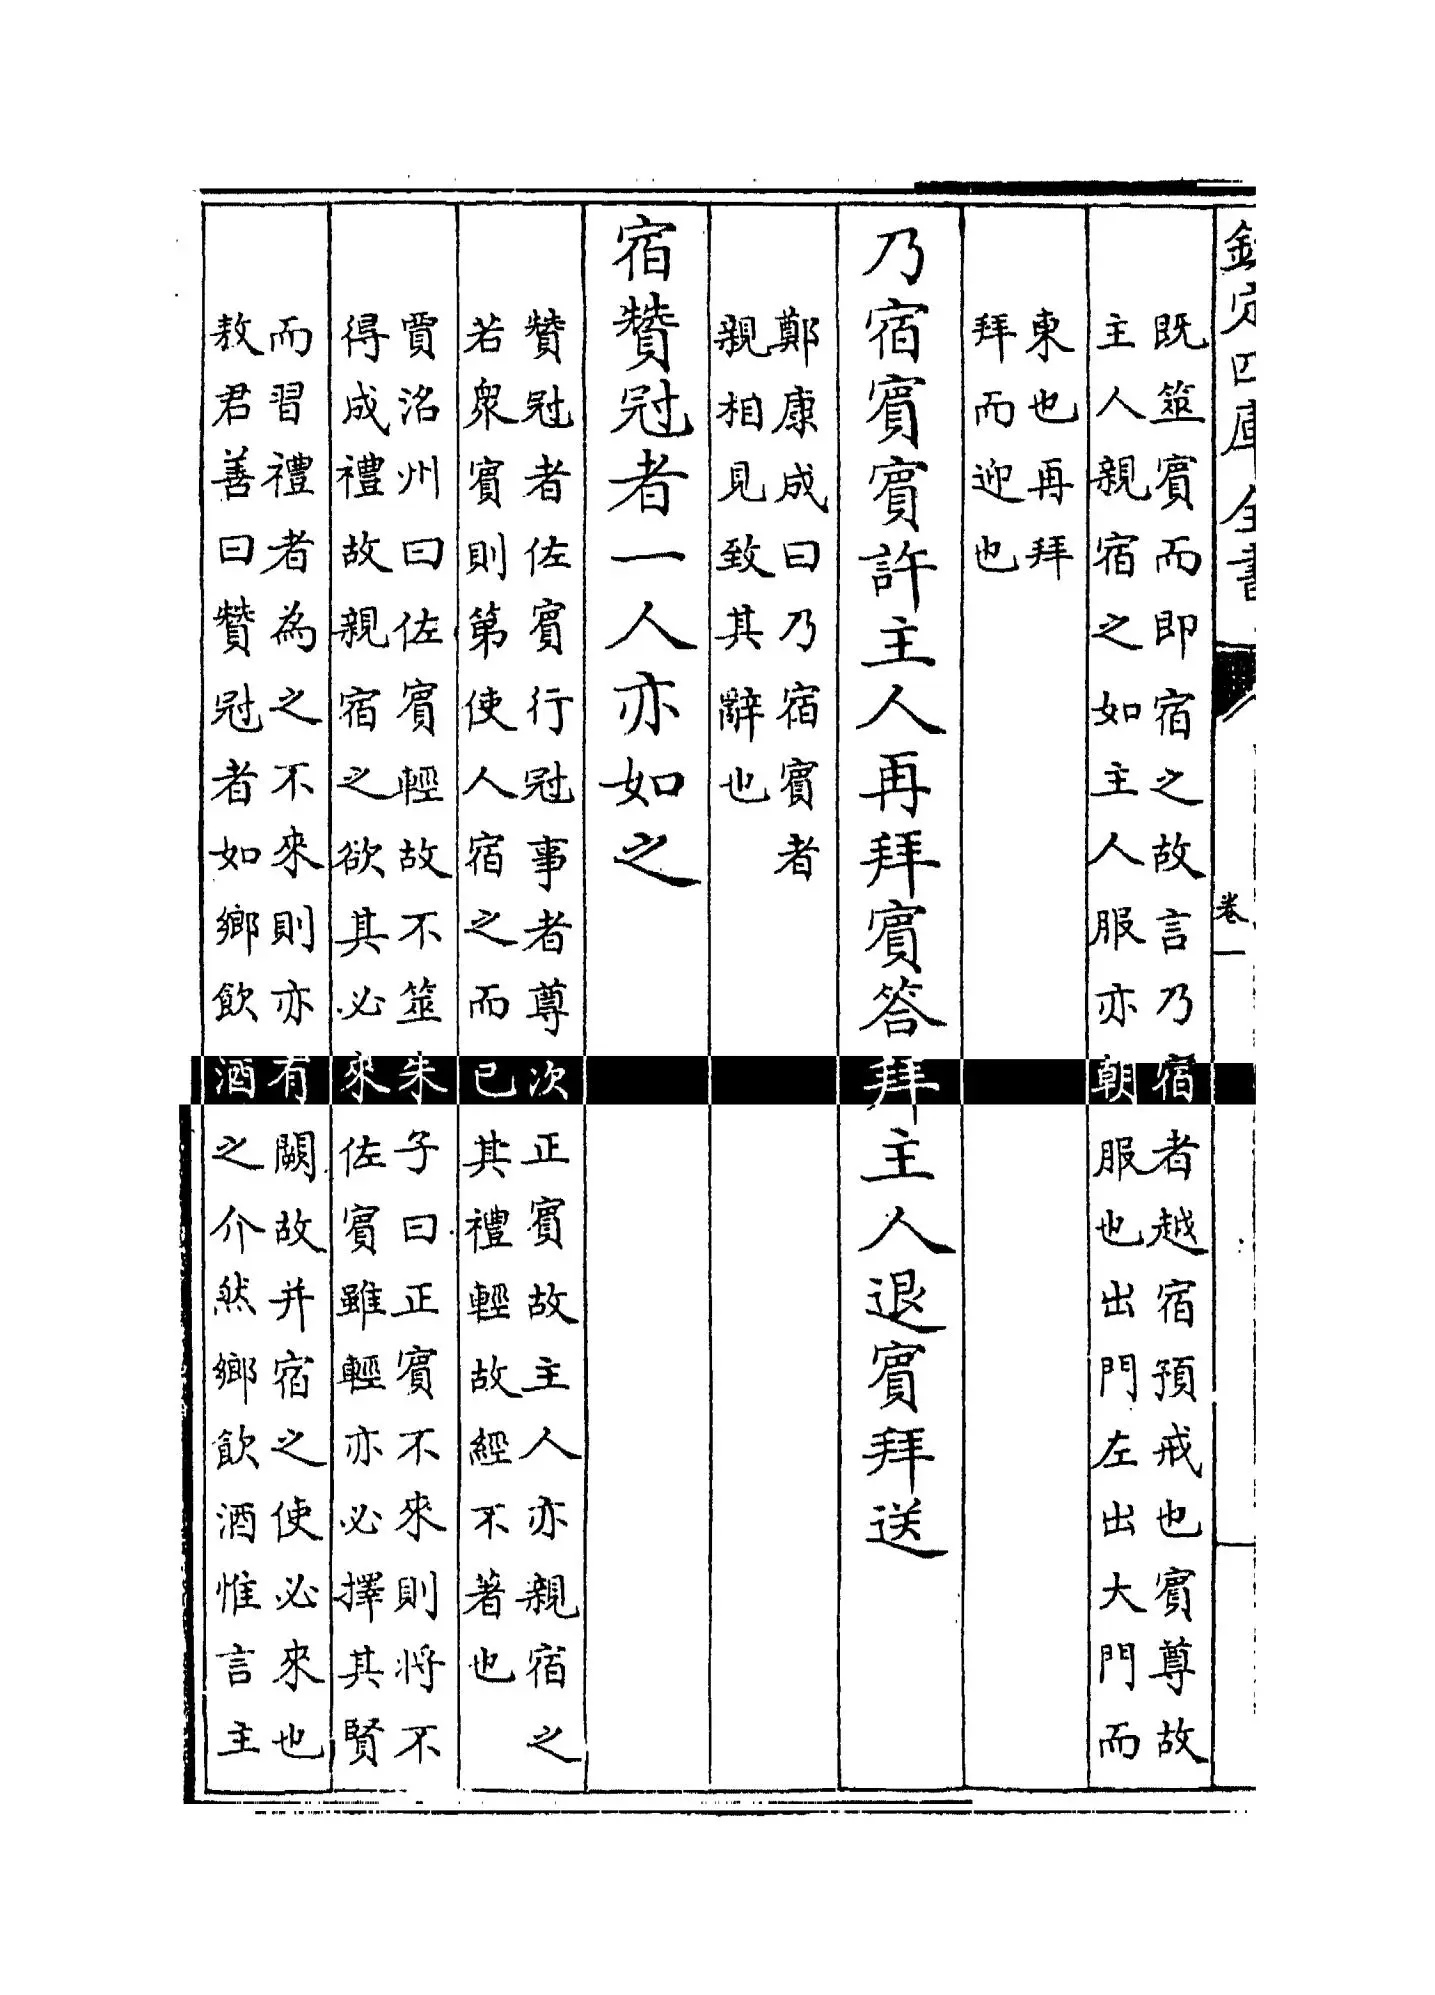 欽定四庫全書
卷一
既筮賓而即宿之故言乃宿者越宿預戒也賓尊故
主人親宿之如主人服亦朝服也出門左出大門而
東也再拜
拜而迎也
乃宿賓賓許主人再拜賓答拜主人退賓拜送
鄭康成曰乃宿賓者
親相見致其辭也
宿贊冠者一人亦如之
贊冠者佐賓行冠事者尊次正賓故主人亦親宿之
若衆賓則第使人宿之而已其禮輕故經不著也
賈洺州曰佐賓輕故不筮朱子曰正賓不來則將不
得成禮故親宿之欲其必來佐賓雖輕亦必擇其賢
而習禮者為之不來則亦有闕故并宿之使必來也
敖君善曰贊冠者如鄉飲酒之介然鄉飲酒惟言主